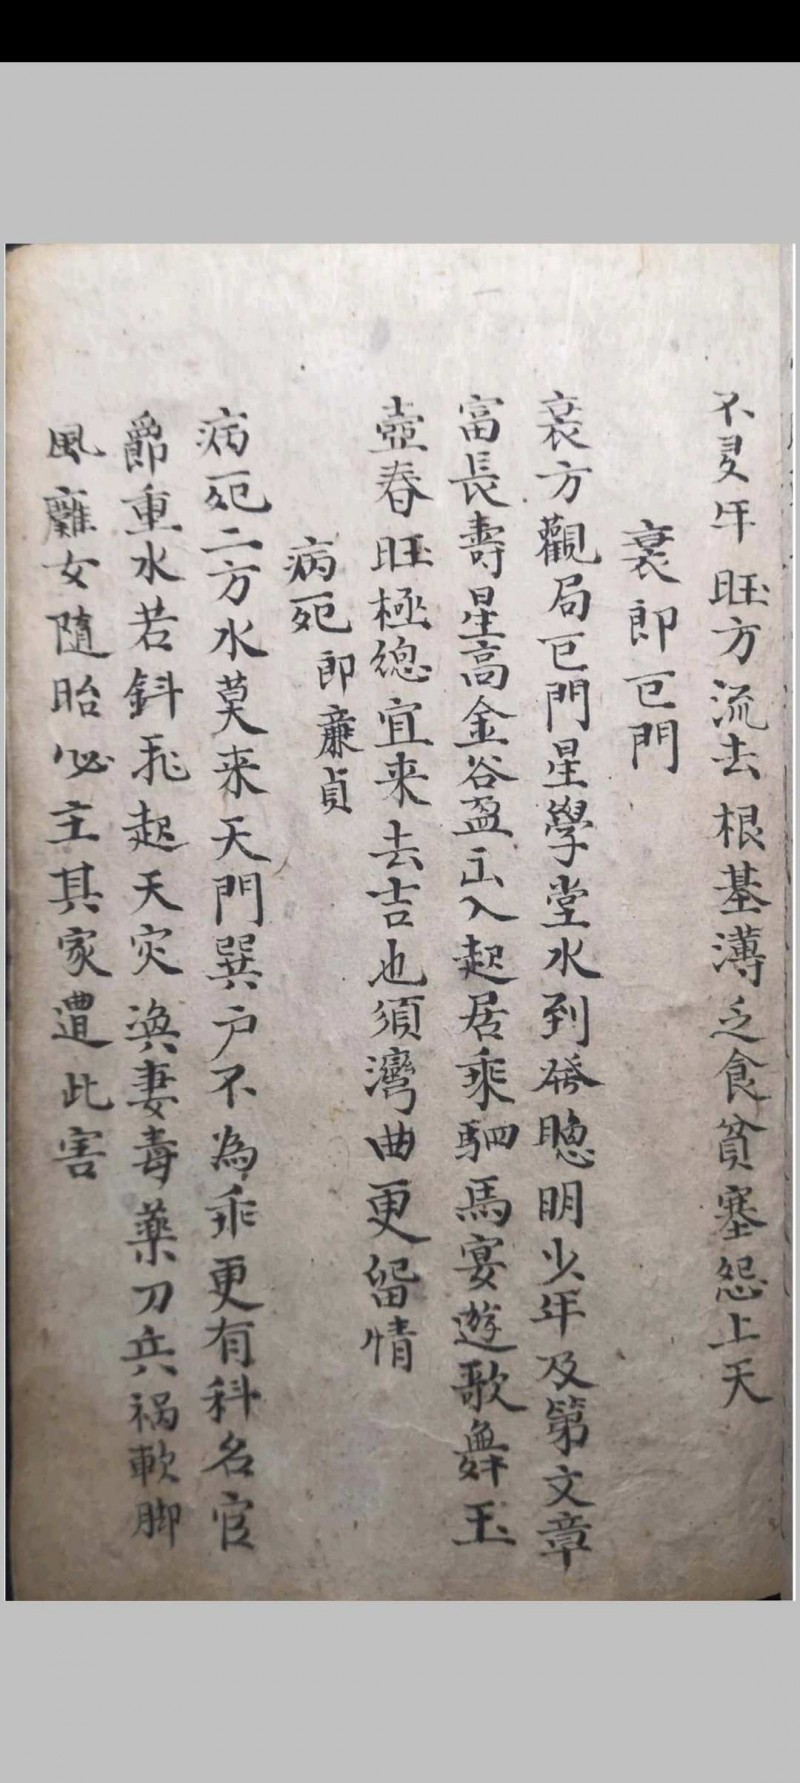 不旻年旺方流去根基薄乏食貧塞怨上天
衰即巨門
衰方觀局巨門星學堂水到發聰明少年及第文章
富長壽星高金谷盈出入起居乘駟馬宴遊歌舞玉
壺春旺極總宜来去吉也須灣曲更留情
病死即廉貞
病死二方水莫来天門巽户不為乖更有科名官
爵重水若斜飛起天灾換妻毒藥刀兵禍軟脚
風癱女随胎必主其家遭此害